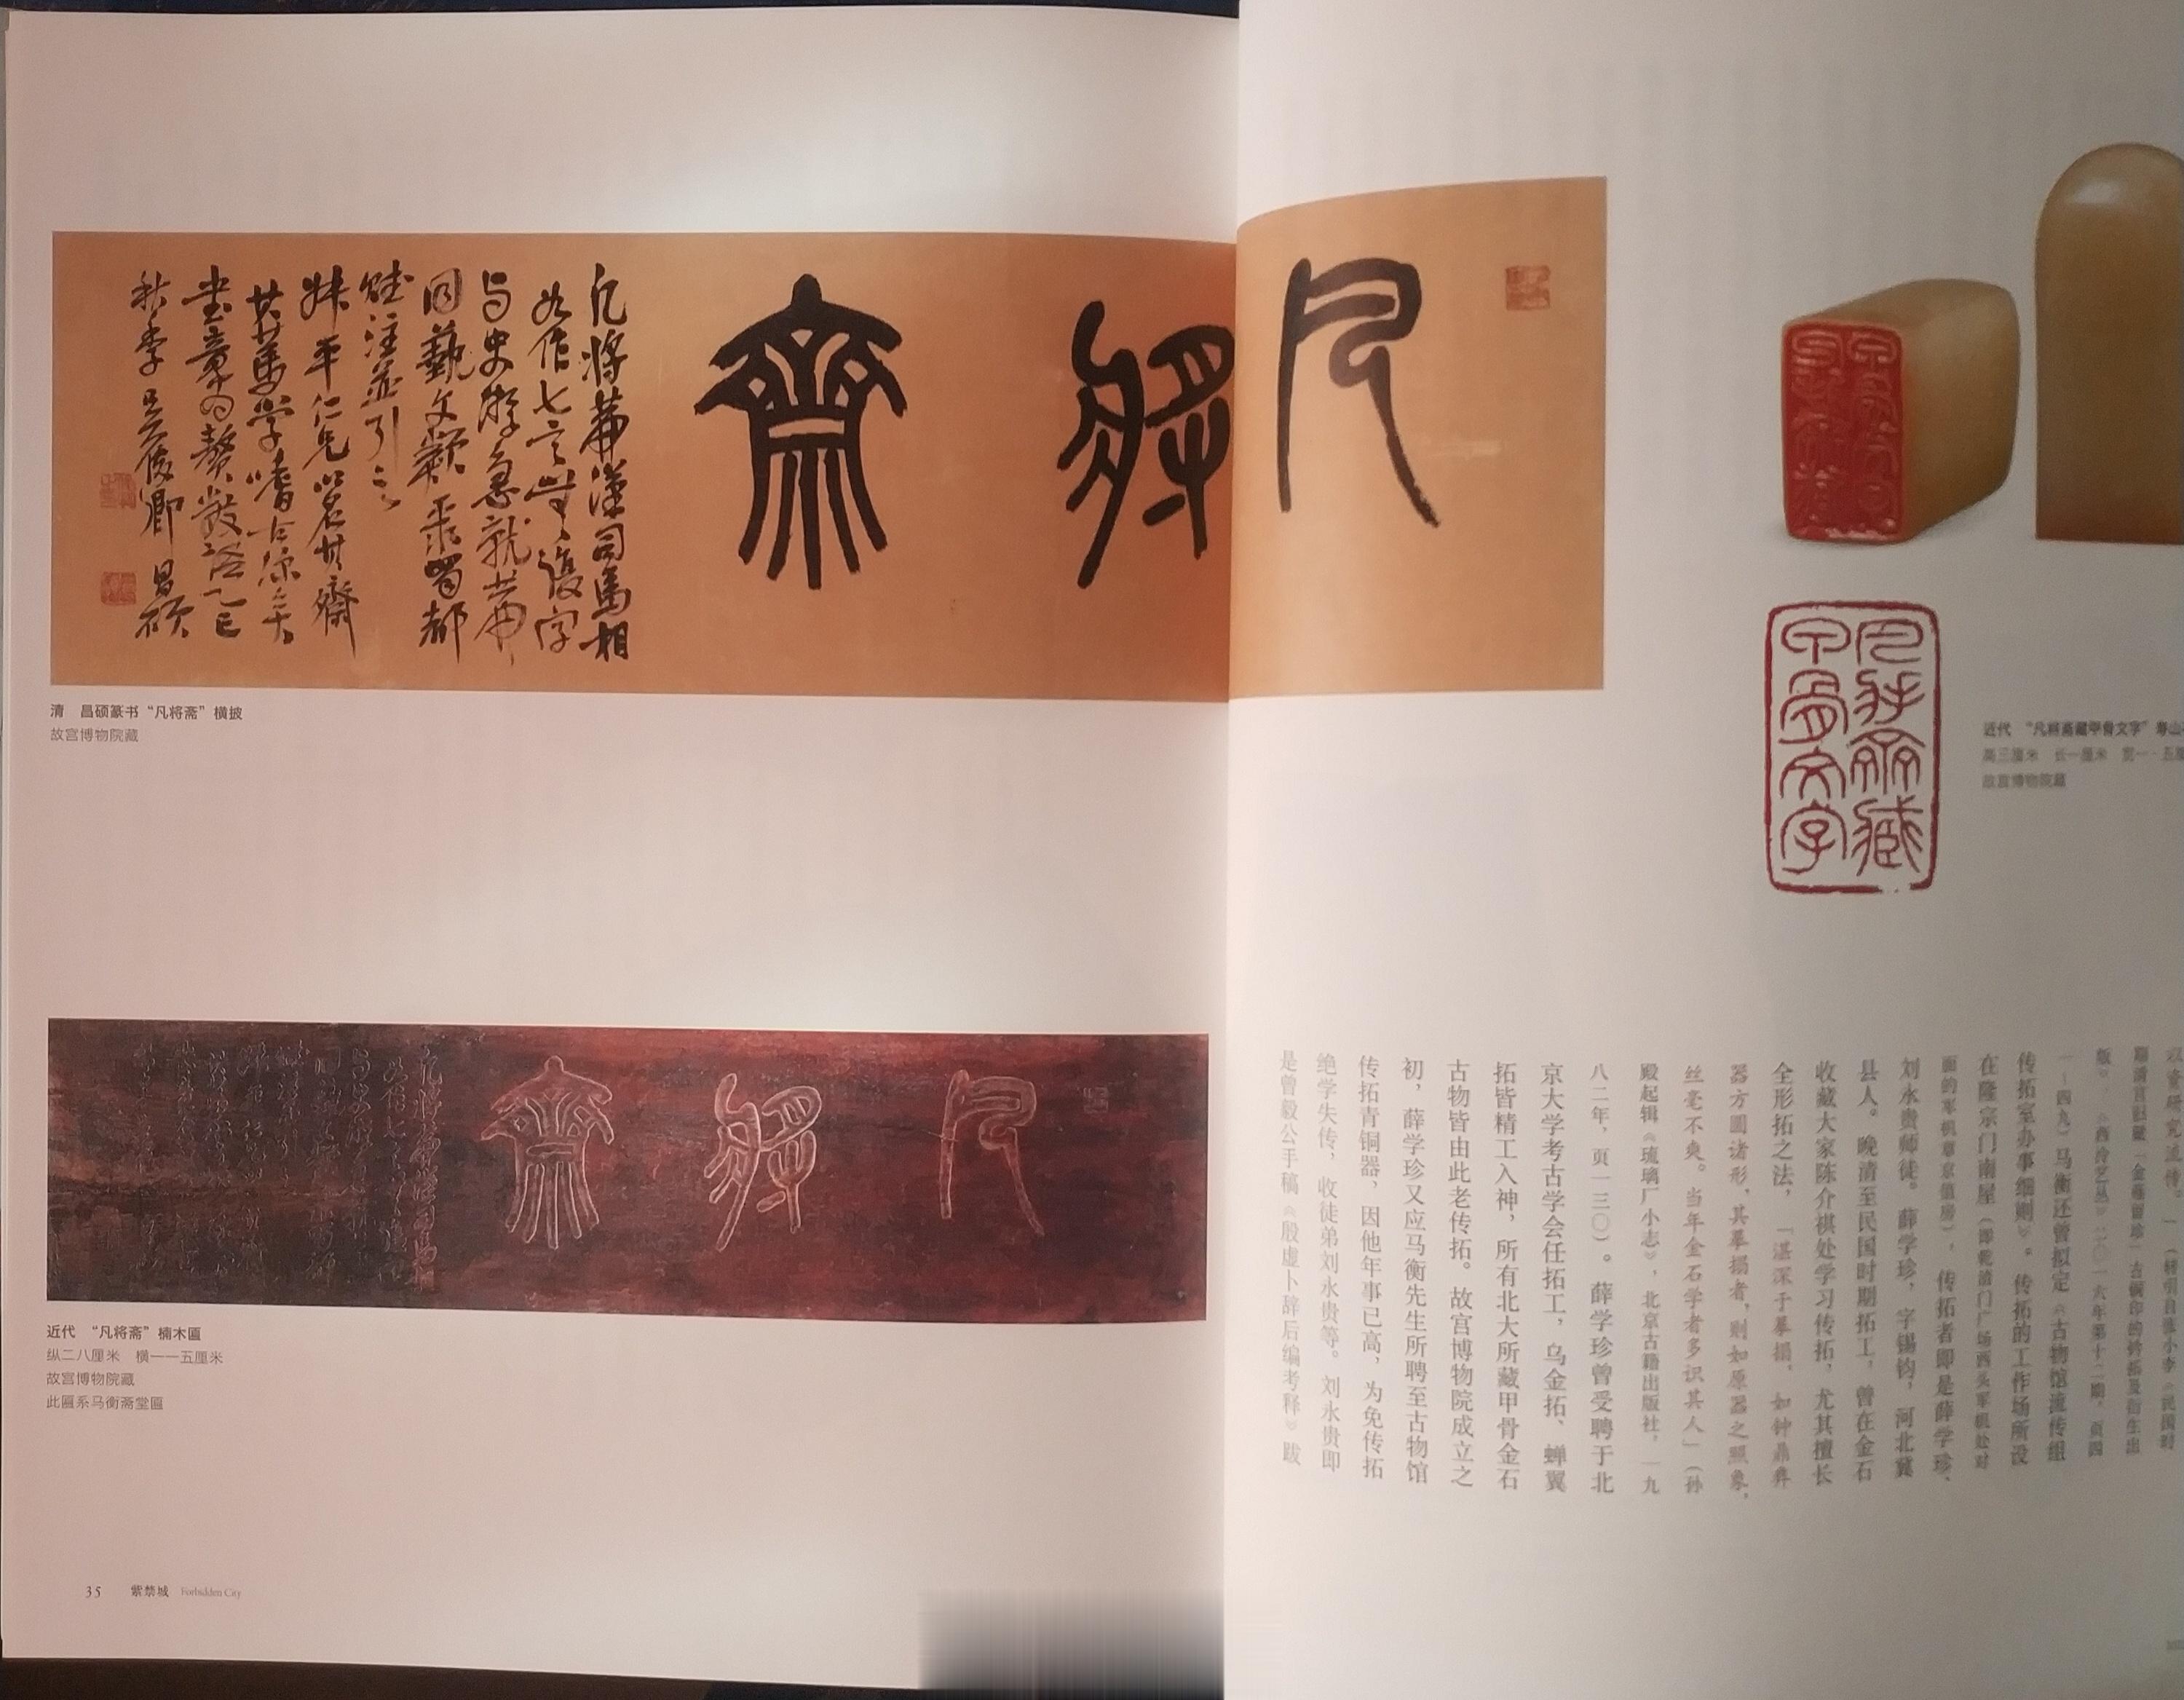 凡
将
斋
凡将篇汉司马相
如作七言无复字
与史游急就篇
同艺文类聚蜀都
赋注并引之
叔平仁兄以名其斋
秋季吴俊卿
昌硕
清 昌硕篆书“凡将斋”横披
故宫博物院藏
凡将斋
近代 “凡将斋”楠木匾
纵二八厘米 横一一五厘米
故宫博物院藏
此匾系马衡斋堂匾
35 紫禁城 Forbidden City
凡将斋藏
甲骨文字
近代 “凡将斋藏甲骨文字”寿山
高三厘米 长一厘米 宽一·五
故宫博物院藏
一一四九）马衡还曾拟定《古物馆流传组
传拓室办事细则》。传拓的工作场所设
在隆宗门南屋（即乾清门广场西头军机处对
面的军机章京值房），传拓者即是薛学珍、
刘永贵师徒。薛学珍，字锡钧，河北冀
县人。晚清至民国时期拓工，曾在金石
收藏大家陈介祺处学习传拓，尤其擅长
全形拓之法，「湛深于摹搨，如钟鼎彝
器方圆诸形，其摹搨者，则如原器之照象，
丝毫不爽。当年金石学者多识其人」（孙
殿起辑《琉璃厂小志》，北京古籍出版社，一九
八二年，页一三〇）。薛学珍曾受聘于北
京大学考古学会任拓工，乌金拓、蝉翼
拓皆精工入神，所有北大所藏甲骨金石
古物皆由此老传拓。故宫博物院成立之
初，薛学珍又应马衡先生所聘至古物馆
传拓青铜器，因他年事已高，为免传拓
绝学失传，收徒弟刘永贵等。刘永贵即
是曾毅公手稿《殷虚卜辞后编考释》跋